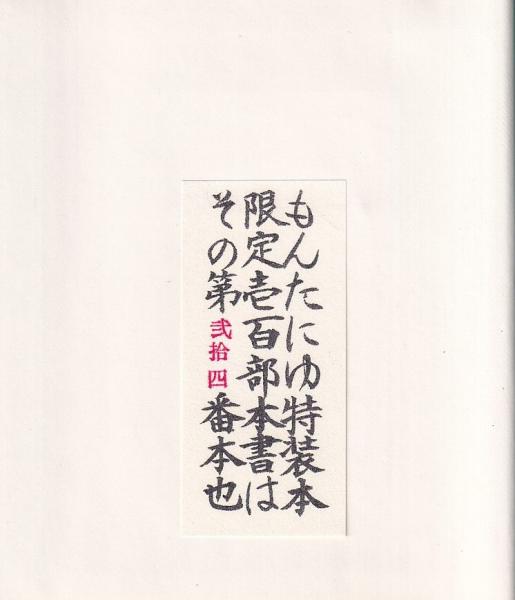 もんたにゆ特装本
限定壱百部本書は
その第弐拾四番本也